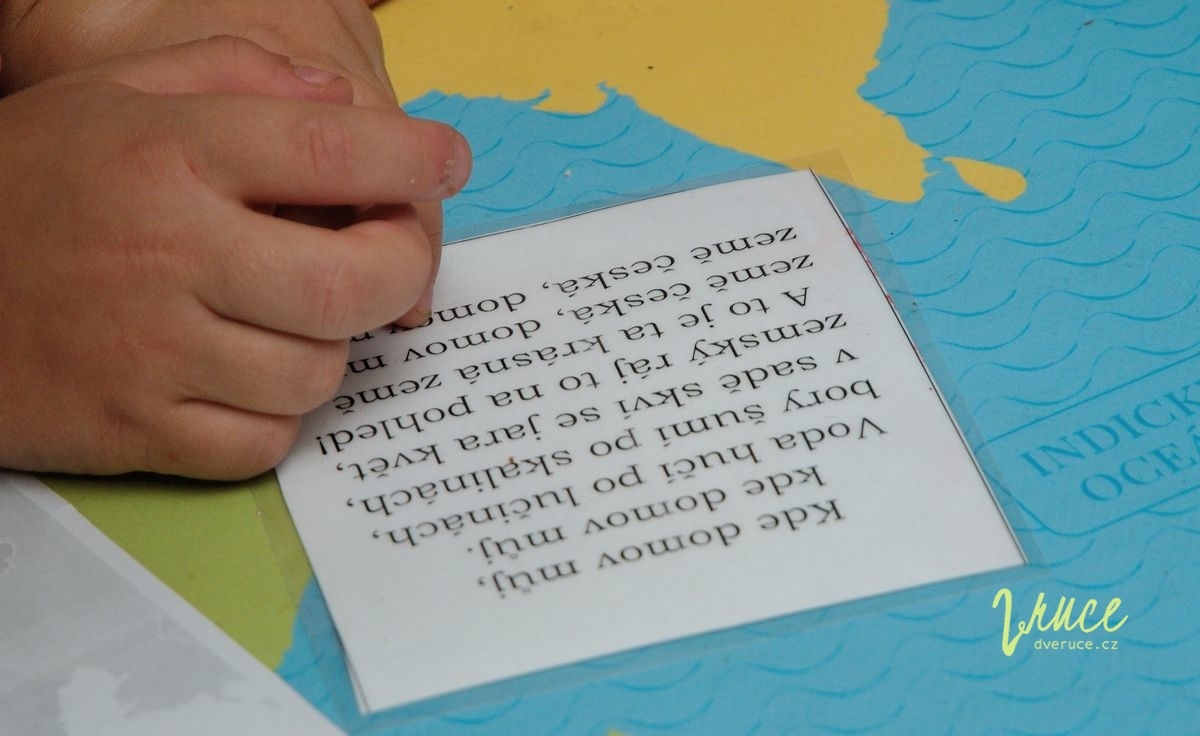 Kde domov můj,
kde domov můj.
Voda hučí po lučinách,
bory šumí po skalinách,
v sadě skví se jara květ,
zemský ráj to na pohled!
A to je ta krásná země
země česká, domov m
země česká, domov
INDICK
OCEÁ
dveruce.cz